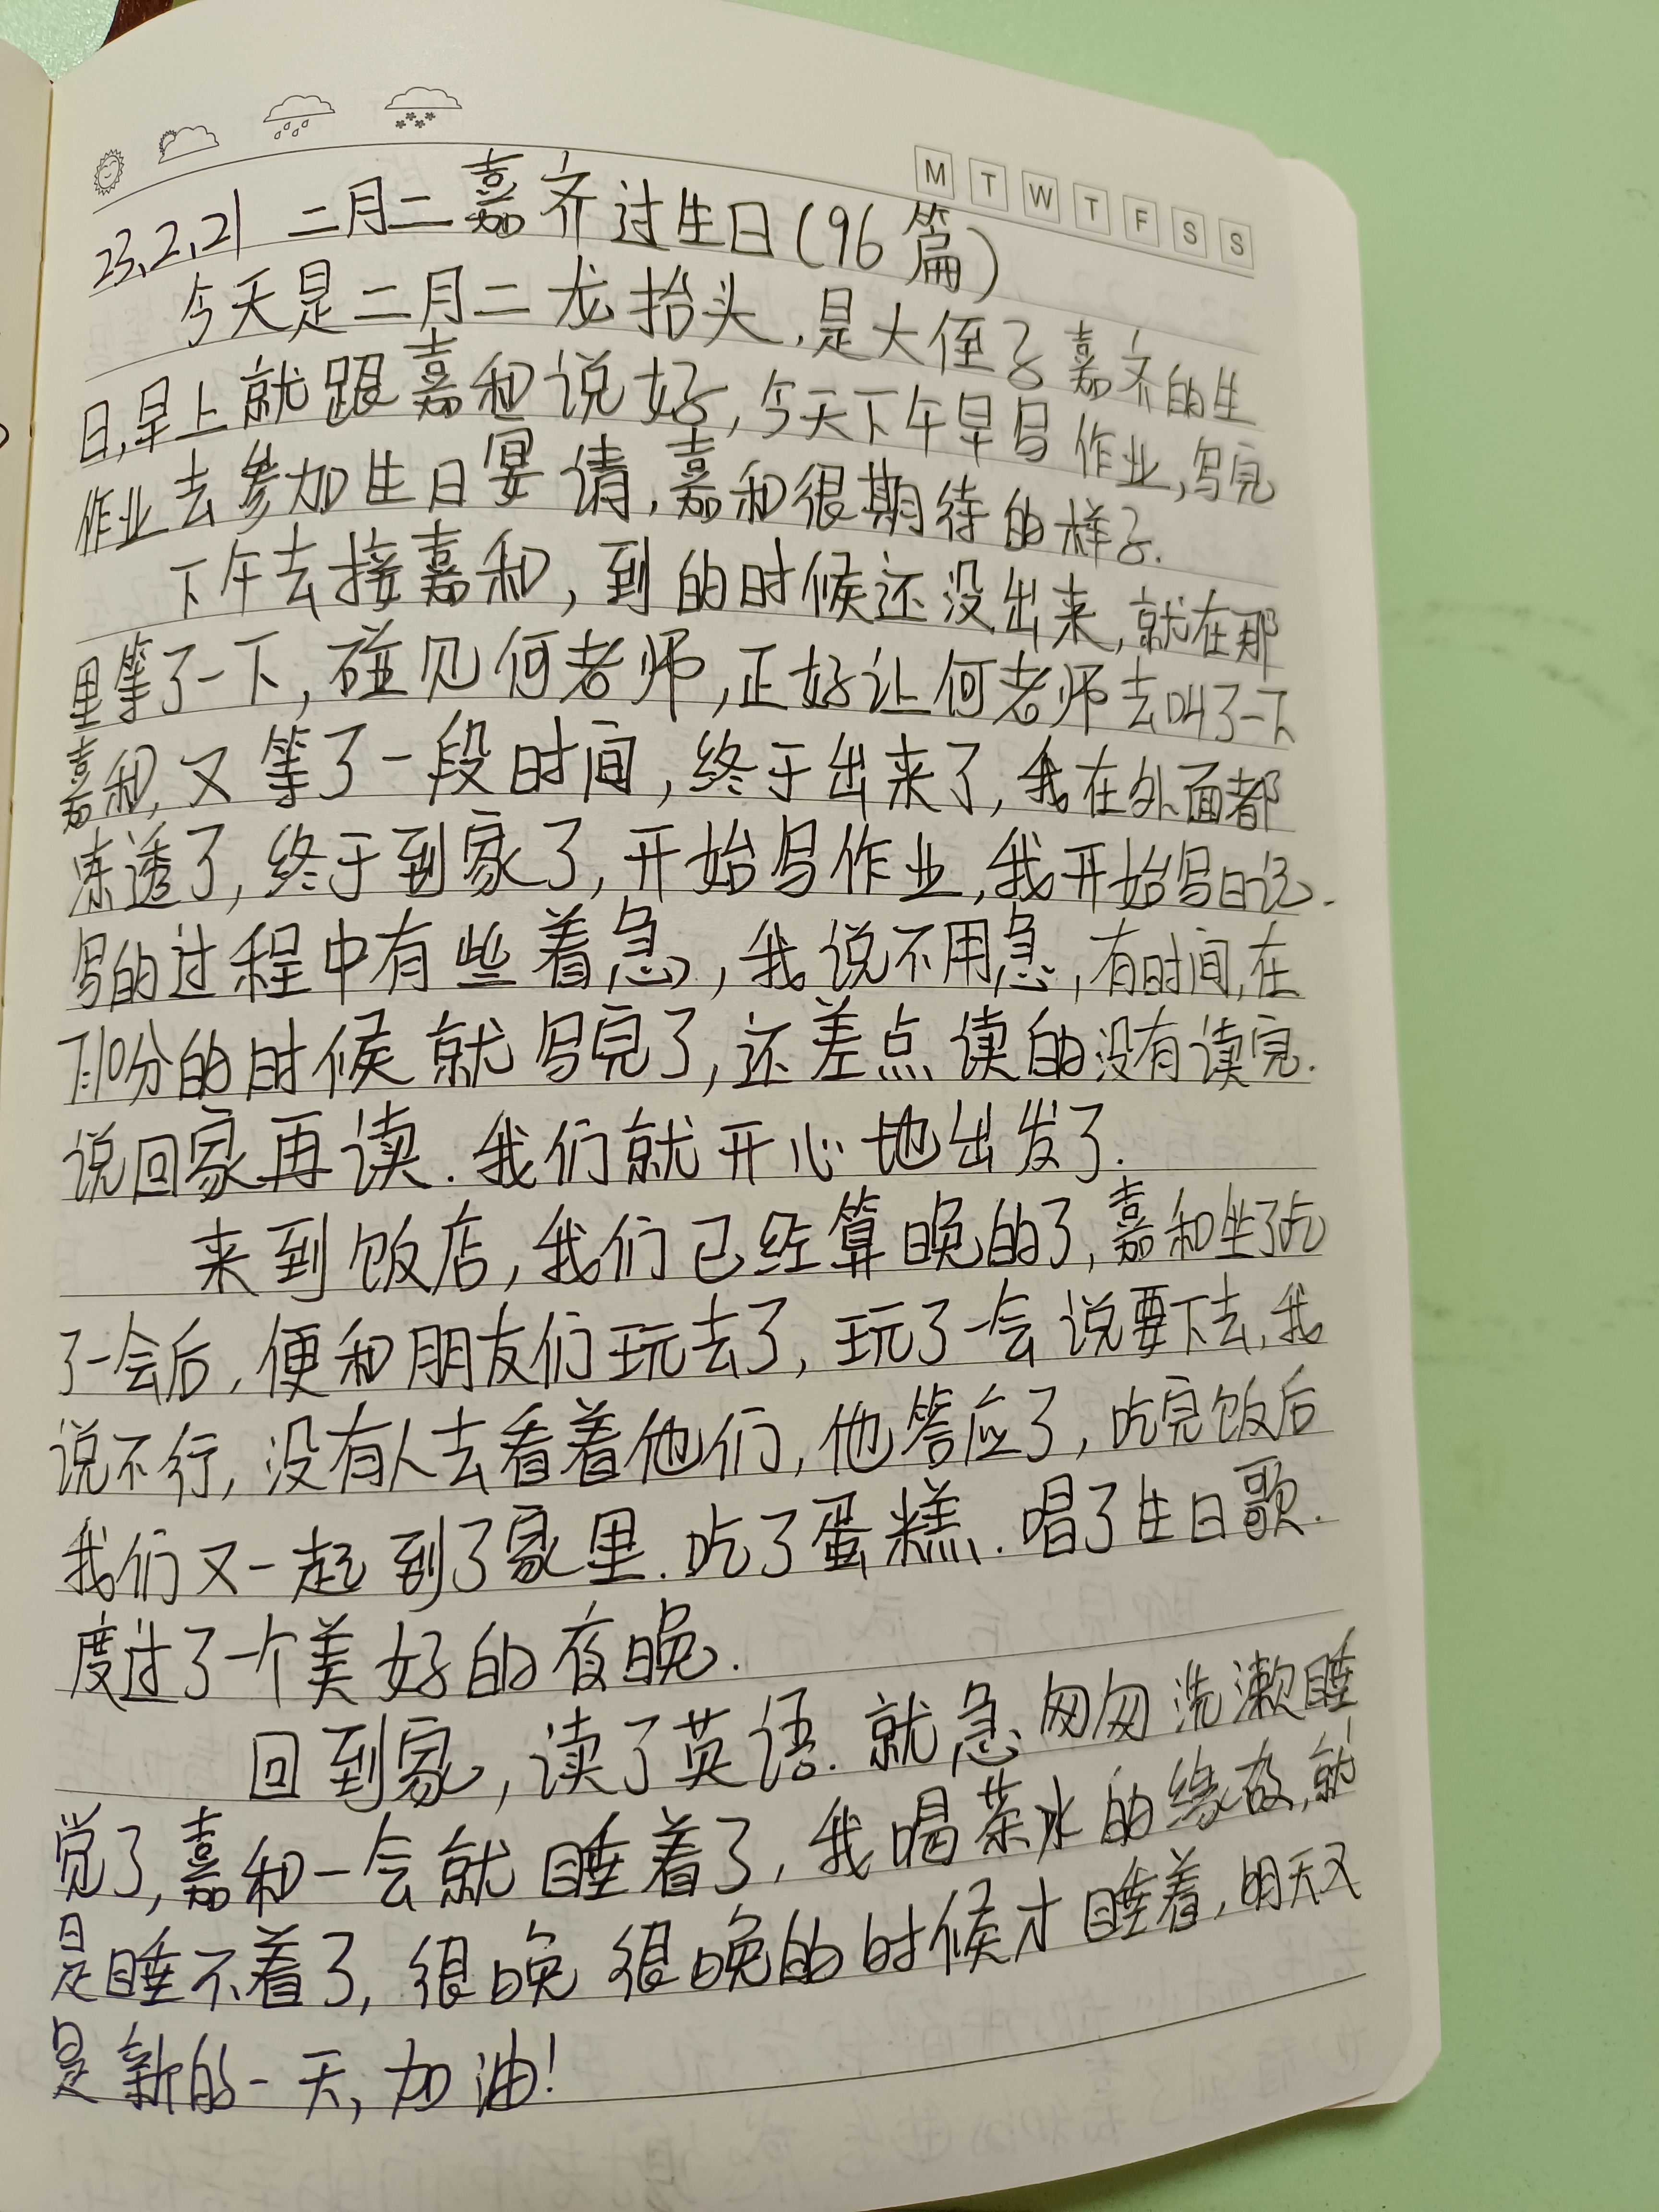 M T W T F S S
23.2.21 二月二嘉齐过生日(96篇)
今天是二月二龙抬头,是大侄子嘉齐的生
日,早上就跟嘉和说好,今天下午早写作业,写完
作业去参加生日宴请,嘉和很期待的样子.
下午去接嘉和,到的时候还没出来,就在那
里等了一下,碰见何老师,正好让何老师去叫了一下
嘉和,又等了一段时间,终于出来了,我在外面都
冻透了,终于到家了,开始写作业,我开始写日记.
写的过程中有些着急,我说不用急,有时间,在
7:10分的时候就写完了,还差点读的没有读完.
说回家再读.我们就开心地出发了.
来到饭店,我们已经算晚的了,嘉和坐了吃
了一会后,便和朋友们玩去了,玩了一会说要下去,我
说不行,没有人去看着他们,他答应了,吃完饭后
我们又一起到了家里.吃了蛋糕.唱了生日歌.
度过了一个美好的夜晚.
回到家,读了英语.就急匆匆洗漱睡
觉了,嘉和一会就睡着了,我喝茶水的缘故,就
是睡不着了,很晚很晚的时候才睡着,明天又
是新的一天,加油!